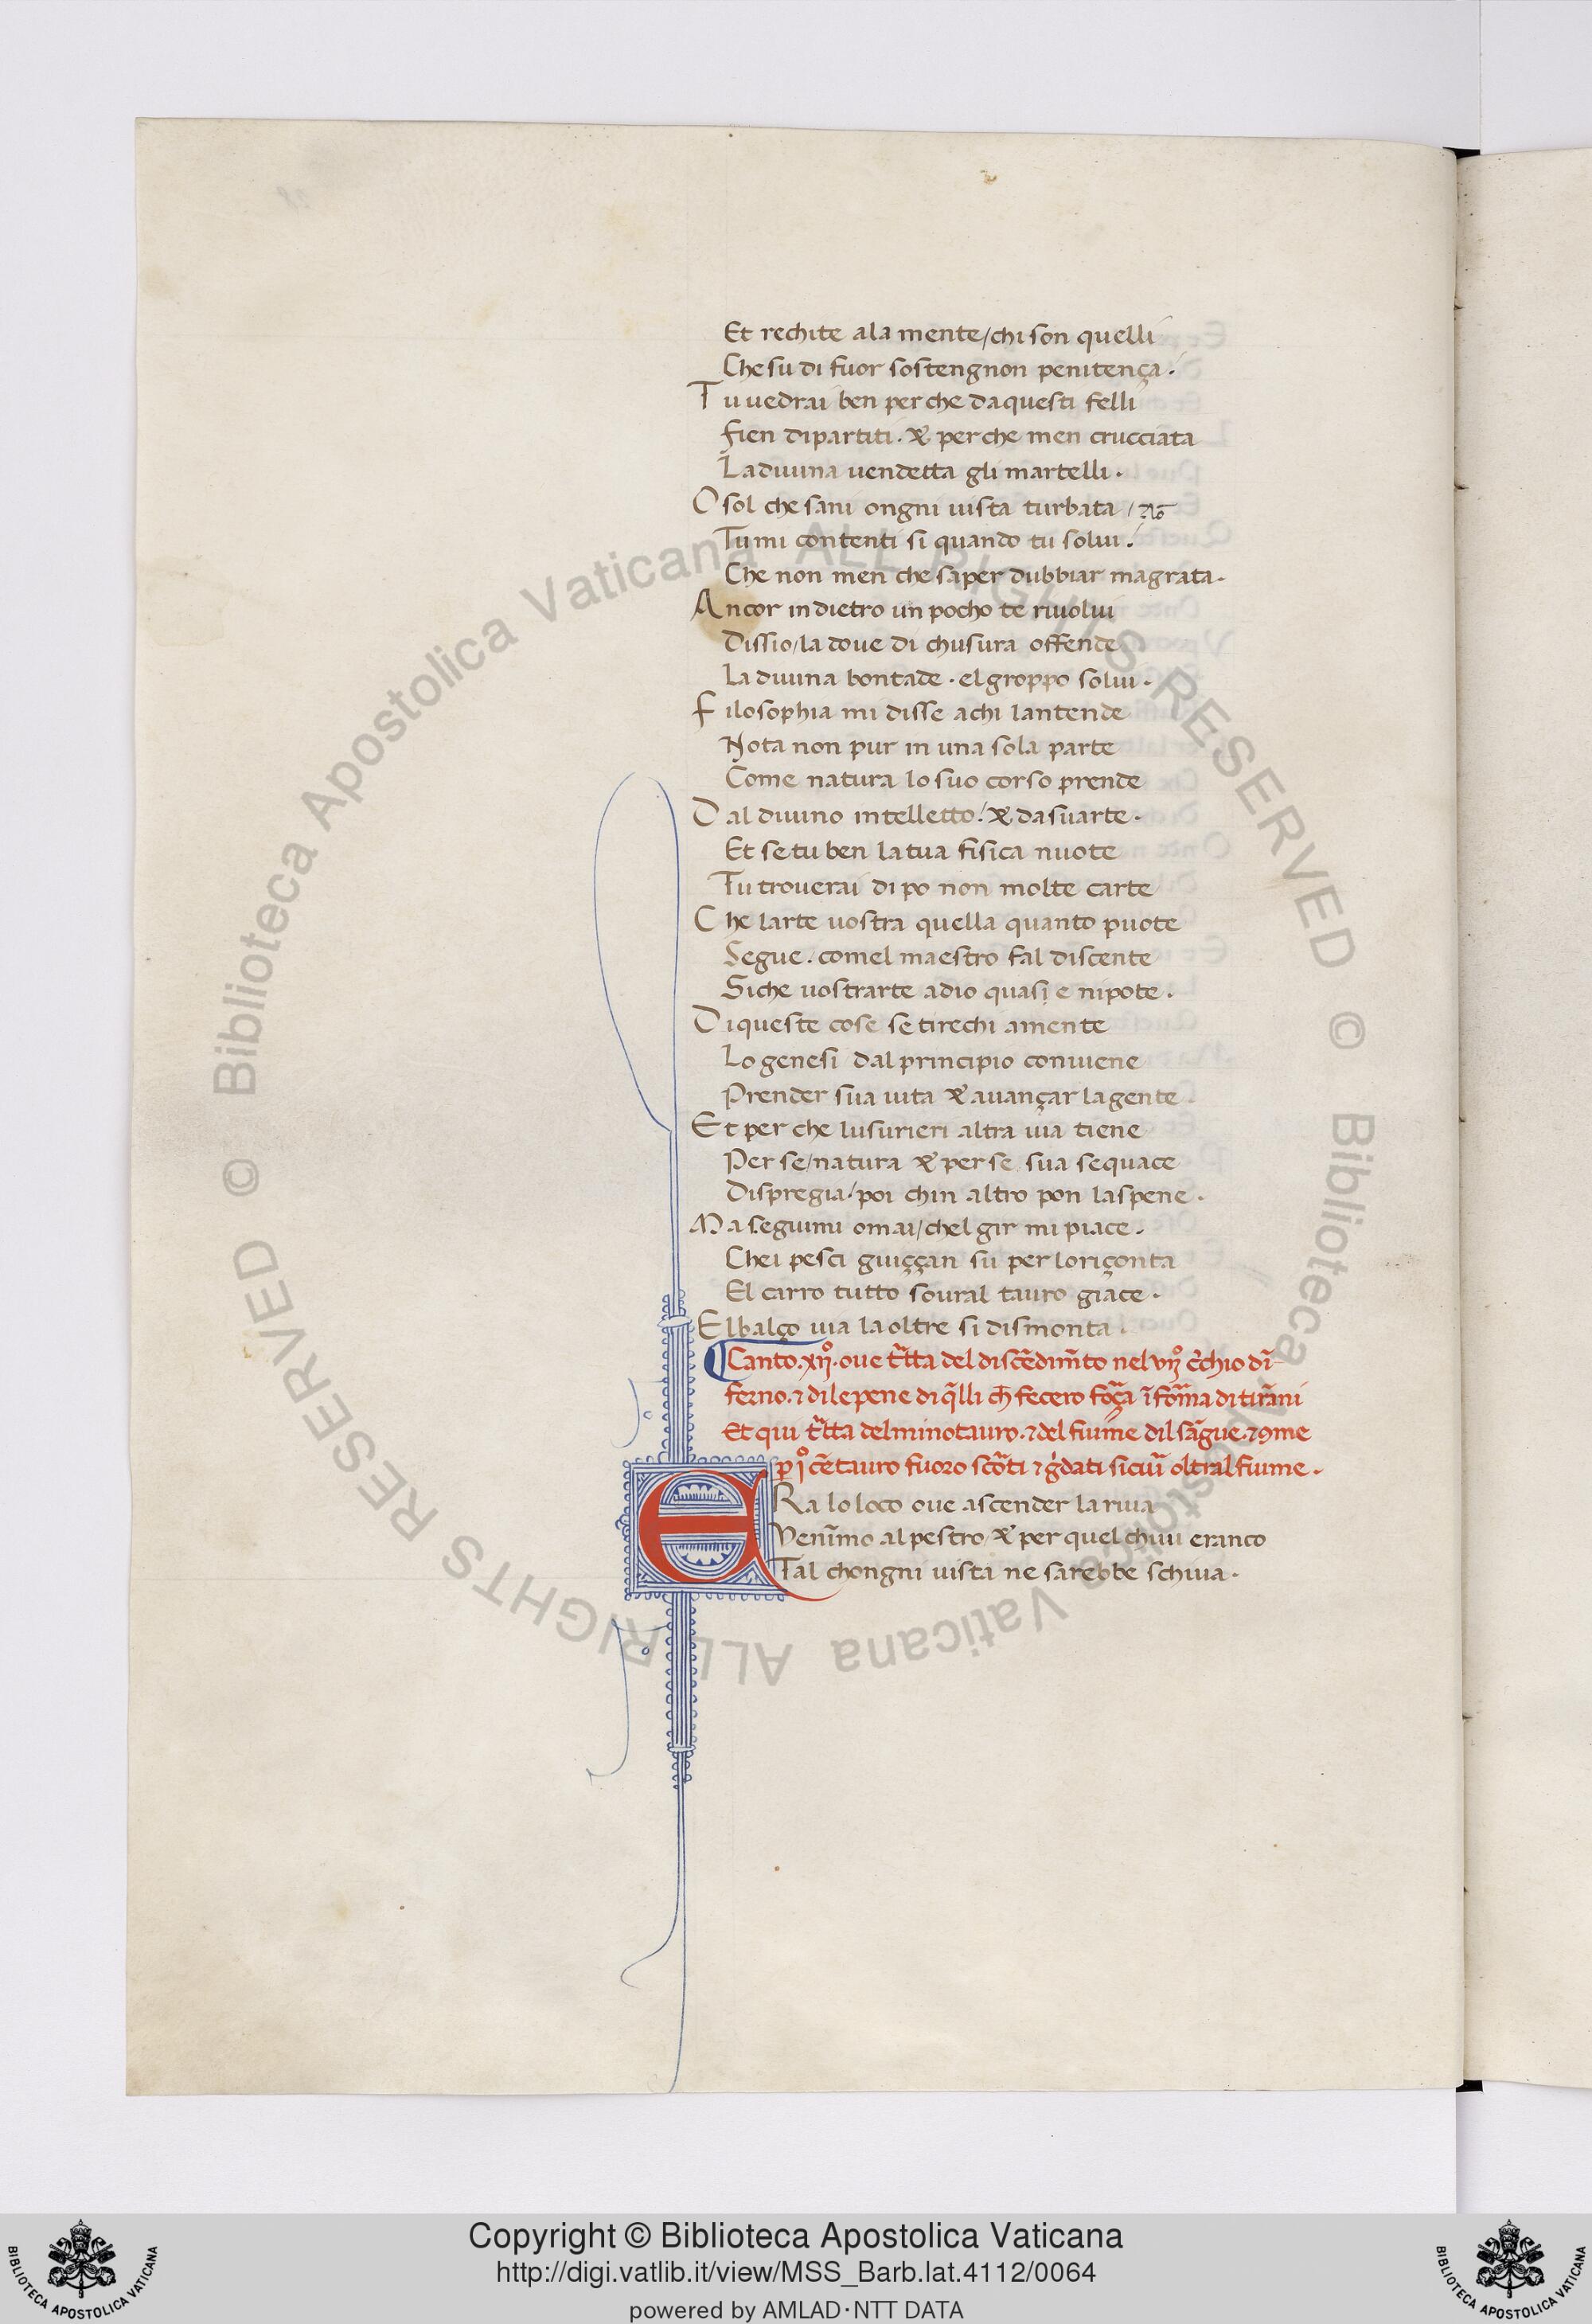 Et rechite ala mente/chi son quelli
Che su di fuor sostengnon penitença.
Tu uedrai ben per che daquesti felli
fien dipartiti. & per che men crucciata
La diuina uendetta gli martelli.
O sol che sani ongni uista turbata /
Tu mi contenti si quando tu solui.
Che non men che saper dubbiar magrata.
Ancor in dietro un pocho te riuolui
Dissio/la doue di chusura offende
La diuina bontade. el groppo solui.
Filosophia mi disse achi lantende
Nota non pur in una sola parte
Come natura lo suo corso prende
Dal diuino intelletto/& da suarte.
Et se tu ben la tua fisica nuote
Tu trouerai di po non molte carte
Che larte uostra quella quanto puote
Segue. comel maestro fal discente
Siche uostrarte adio quasi e nipote.
Di queste cose se ti rechi amente
Lo genesi dal principio conuiene
Prender sua uita & auançar la gente.
Et per che lusurieri altra uia tiene
Per se/natura & per se sua sequace
Dispregia/poi chin altro pon laspene.
Ma seguimi omai/chel gir mi piace.
Chei pesci guiççan su per loriçonta
El carro tutto soural tauro giace.
El balço uia la oltre si dismonta.
Canto.xij°.oue t̄tta del discēdim̄to nel vij° c̄chio dī
ferno.⁊ di le pene di q̄lli ch̄ fecero fōça ī fōma di tirāni
Et qui t̄tta del minotauro.⁊ del fiume dil sāgue.⁊ 9me
p i° cētauro fuoro scōti ⁊ gdati sicuī oltral fiume.
ERa lo loco oue ascender la riua
Venīmo alpestro/& per quel chiui eranco
Tal chongni uista ne sarebbe schiua.
© Biblioteca Apostolica Vaticana ALL RIGHTS RESERVED © Biblioteca Apostolica Vaticana ALL RIGHTS RESERVED
Copyright © Biblioteca Apostolica Vaticana
http://digi.vatlib.it/view/MSS_Barb.lat.4112/0064
powered by AMLAD·NTT DATA
BIBLIOTECA APOSTOLICA VATICANA
BIBLIOTECA APOSTOLICA VATICANA